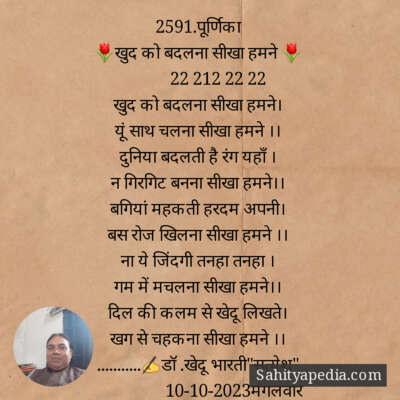 2591.पूर्णिका
🌷खुद को बदलना सीखा हमने 🌷
22 212 22 22
खुद को बदलना सीखा हमने।
यूं साथ चलना सीखा हमने ।।
दुनिया बदलती है रंग यहाँ ।
न गिरगिट बनना सीखा हमने।।
बगियां महकती हरदम अपनी।
बस रोज खिलना सीखा हमने ।।
ना ये जिंदगी तनहा तनहा ।
गम में मचलना सीखा हमने।।
दिल की कलम से खेदू लिखते।
खग से चहकना सीखा हमने ।।
...........✍डॉ .खेदू भारती
10-10-2023मंगलवार
Sahityapedia.com